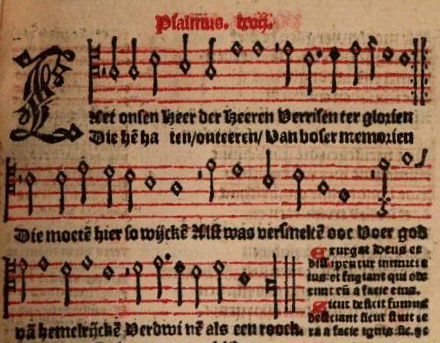 Psalmus. lxvij.
Laet onsen Heer der Heeren Verrisen ter glorien
Die hē ha ten/onteeren/ Van boser memorien
Die moetē hier so wijckē Alst was versmeltē ooc Voer god
vā hemelrijckē Verdwi nē als een roock.
Exurgat deus et
dissipentur inimici e
ius: et fugiant qui ode
runt eū a facie eius.
Sicut deficit fumus
deficiant: sicut fluit ce
ra a facie ignis: sic. &c